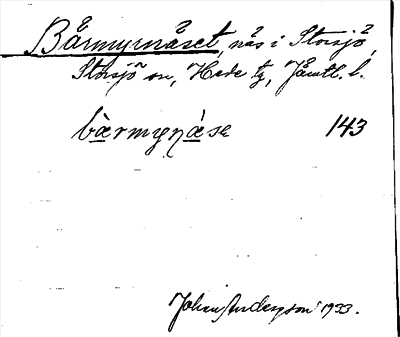 Bårmyrnäset, näs i Storsjö,
Storsjö sn, Hede tg, Jämtl. l.
bàrmyrnä́se 143
Johan Anderson 1933.